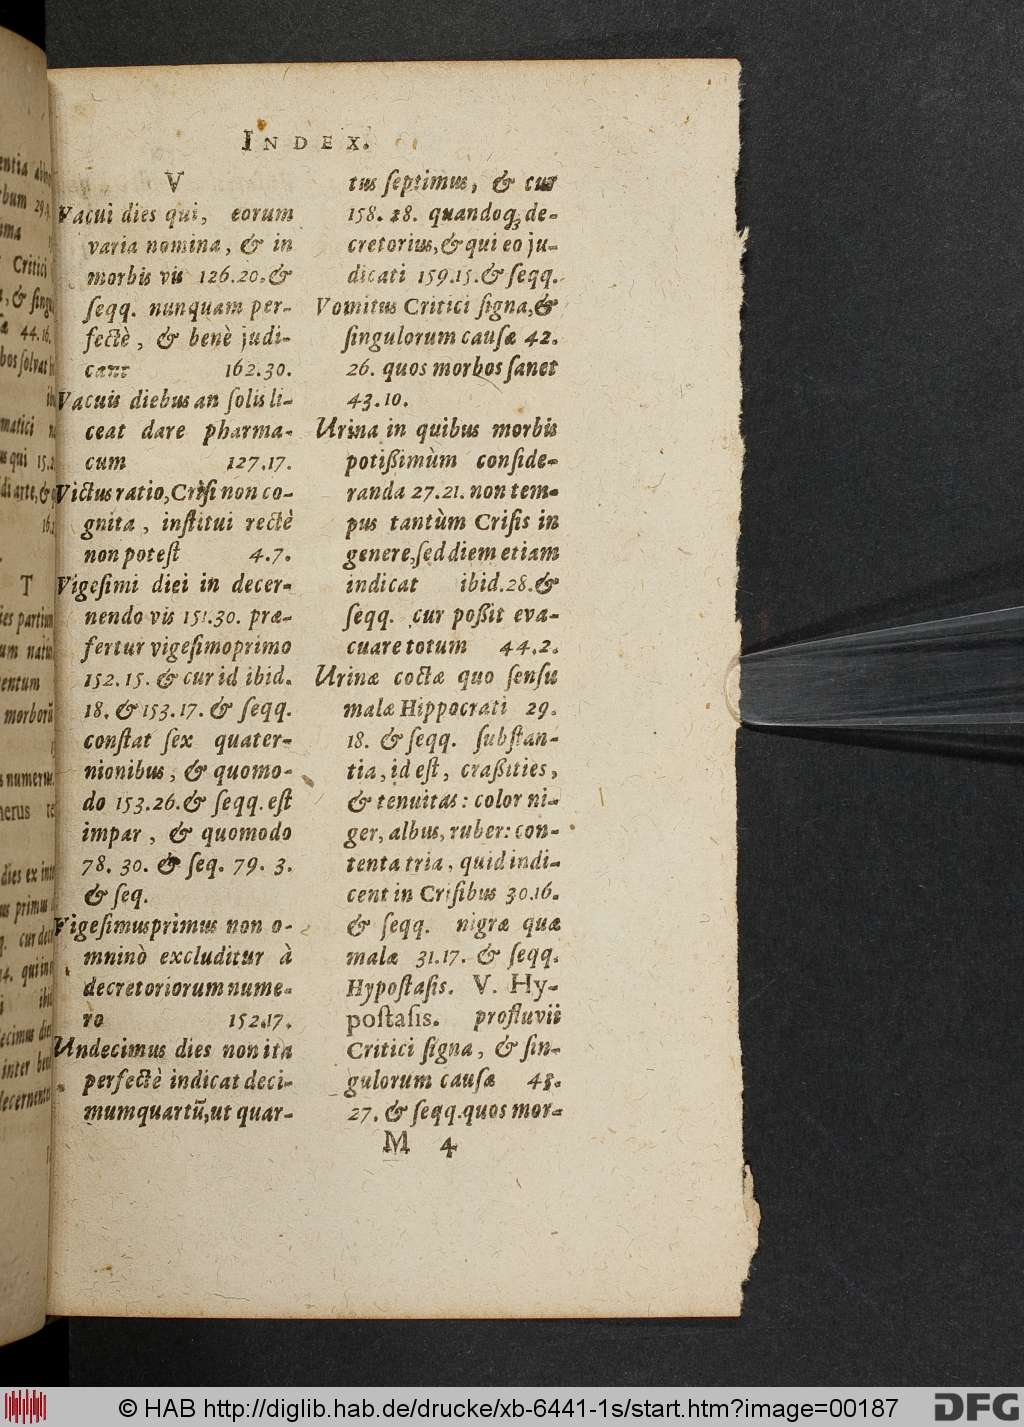 INDEX.
V
Vacui dies qui, eorum
varia nomina, & in
morbis vis 126.20.&
seqq. nunquam per-
fectè, & benè judi-
cant 162.30.
Vacuis diebus an solis li-
ceat dare pharma-
cum 127.17.
Victus ratio, Crisi non co-
gnita, institui rectè
non potest 4.7.
Vigesimi diei in decer-
nendo vis 151.30. præ-
fertur vigesimoprimo
152.15. & cur id ibid.
18. & 153.17. & seqq.
constat sex quater-
nionibus, & quomo-
do 153.26.& seqq. est
impar, & quomodo
78. 30. & seq. 79. 3.
& seq.
Vigesimusprimus non o-
mninò excluditur à
decretoriorum nume-
ro 152.17.
Undecimus dies non ita
perfectè indicat deci-
mumquartũ, ut quar-
tus septimus, & cur
158. 18. quandoq; de-
cretorius, & qui eo ju-
dicati 159.15.& seqq.
Vomitus Critici signa, &
singulorum causæ 42.
26. quos morbos sanet
43.10.
Urina in quibus morbis
potißimùm conside-
randa 27.21. non tem-
pus tantùm Crisis in
genere, sed diem etiam
indicat ibid.28.&
seqq. cur poßit eva-
cuare totum 44.2.
Urinæ coctæ quo sensu
malæ Hippocrati 29.
18. & seqq. substan-
tia, id est, craßities,
& tenuitas: color ni-
ger, albus, ruber: con-
tenta tria, quid indi-
cent in Crisibus 30.16.
& seqq. nigræ quæ
malæ 31.17. & seqq.
Hypostasis. V. Hy-
postasis. profluvii
Critici signa, & sin-
gulorum causæ 43.
27. & seqq. quos mor-
M 4
© HAB http://diglib.hab.de/drucke/xb-6441-1s/start.htm?image=00187
DFG